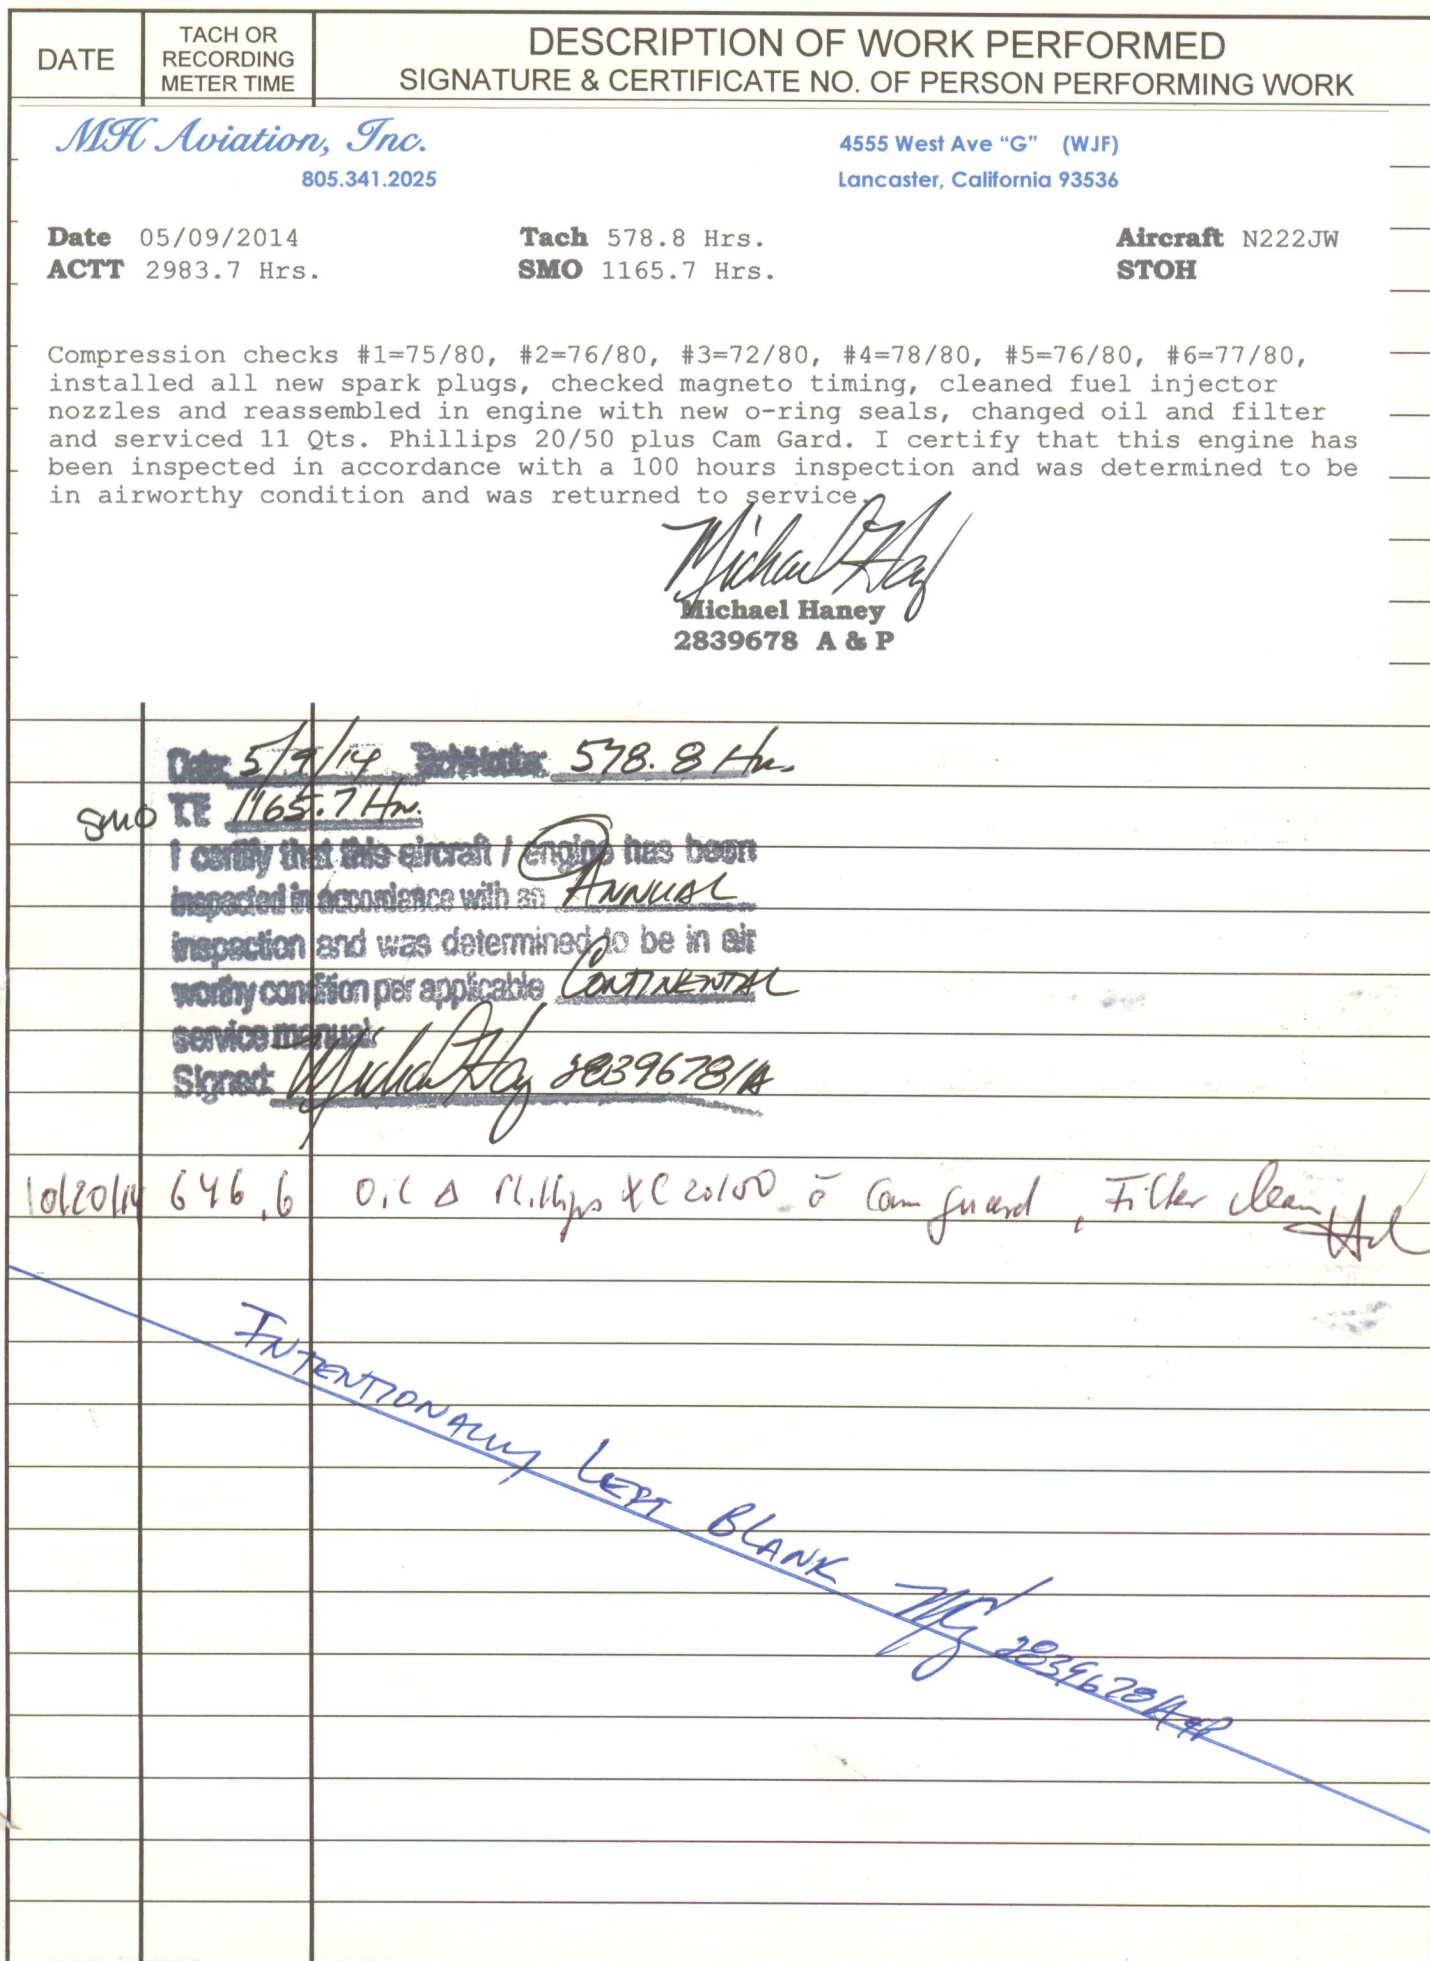 DATE
TACH OR RECORDING METER TIME
DESCRIPTION OF WORK PERFORMED
SIGNATURE & CERTIFICATE NO. OF PERSON PERFORMING WORK
MH Aviation, Inc.
805.341.2025
4555 West Ave “G” (WJF)
Lancaster, California 93536
Date 05/09/2014 Tach 578.8 Hrs. Aircraft N222JW
ACTT 2983.7 Hrs. SMO 1165.7 Hrs. STOH
Compression checks #1=75/80, #2=76/80, #3=72/80, #4=78/80, #5=76/80, #6=77/80,
installed all new spark plugs, checked magneto timing, cleaned fuel injector
nozzles and reassembled in engine with new o-ring seals, changed oil and filter
and serviced 11 Qts. Phillips 20/50 plus Cam Gard. I certify that this engine has
been inspected in accordance with a 100 hours inspection and was determined to be
in airworthy condition and was returned to service.
Michael Haney
2839678 A & P
Date: 5/9/14 578.8 Hrs.
SMO TT 1165.7 Hrs.
I certify that this aircraft / engine has been
inspected in accordance with an ANNUAL
inspection and was determined to be in air
worthy condition per applicable CONTINENTAL
service manual.
Signed: 2839678/IA
10/20/14 646.6 Oil Δ Phillips XC 20/50 c̄ Cam guard, Filter clean
INTENTIONALLY LEFT BLANK 2839678 A&P